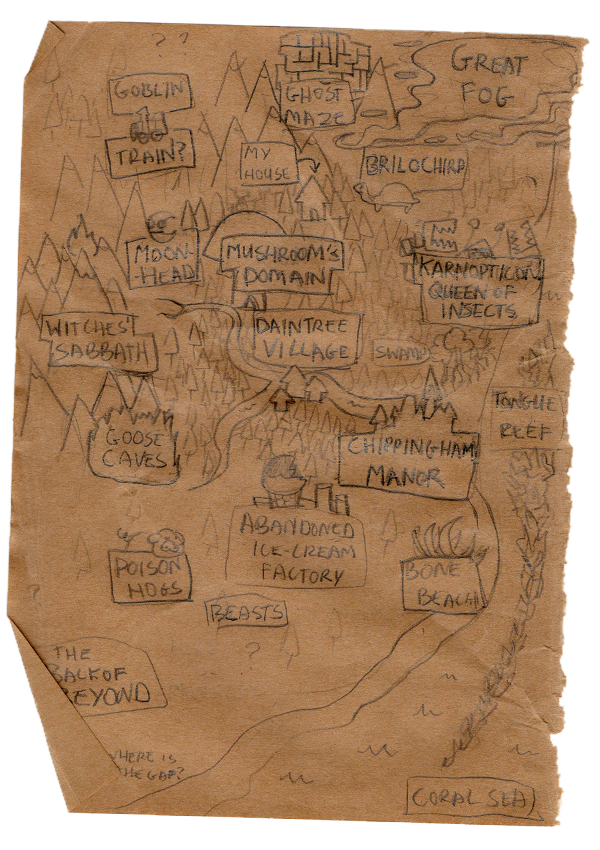 ? ?
GREAT
FOG
GOBLIN
TRAIN?
GHOST
MAZE
MY
HOUSE
BRILOCHIRP
MOON-
HEAD
MUSHROOM'S
DOMAIN
KARNOPTICON
QUEEN OF
INSECTS
WITCHES'
SABBATH
DAINTREE
VILLAGE
SWAMP
TONGUE
REEF
GOOSE
CAVES
CHIPPINGHAM
MANOR
ABANDONED
ICE-CREAM
FACTORY
POISON
HOGS
BONE
BEACH
BEASTS
?
?
THE
BACK OF
BEYOND
WHERE IS
THE GAP?
CORAL SEA